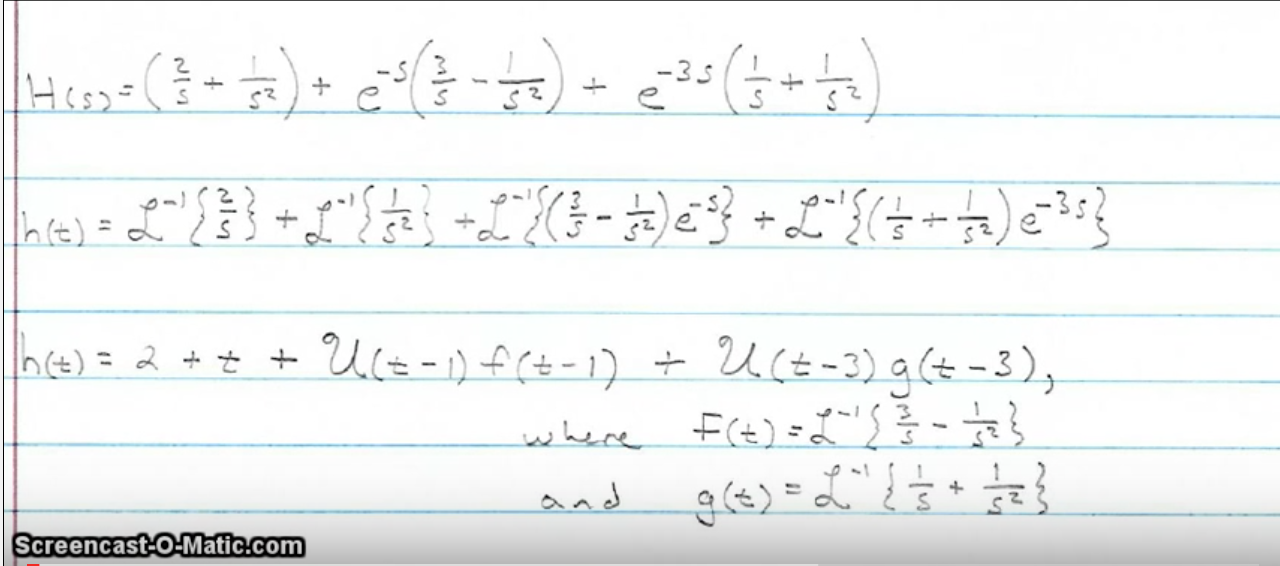 H(s) = (2/s + 1/s²) + e^{-s}(3/s - 1/s²) + e^{-3s}(1/s + 1/s²)
h(t) = ℒ⁻¹{2/s} + ℒ⁻¹{1/s²} + ℒ⁻¹{(3/s - 1/s²)e^{-s}} + ℒ⁻¹{(1/s + 1/s²)e^{-3s}}
h(t) = 2 + t + 𝒰(t-1) f(t-1) + 𝒰(t-3) g(t-3),
where F(t) = ℒ⁻¹{3/s - 1/s²}
and g(t) = ℒ⁻¹{1/s + 1/s²}
Screencast-O-Matic.com